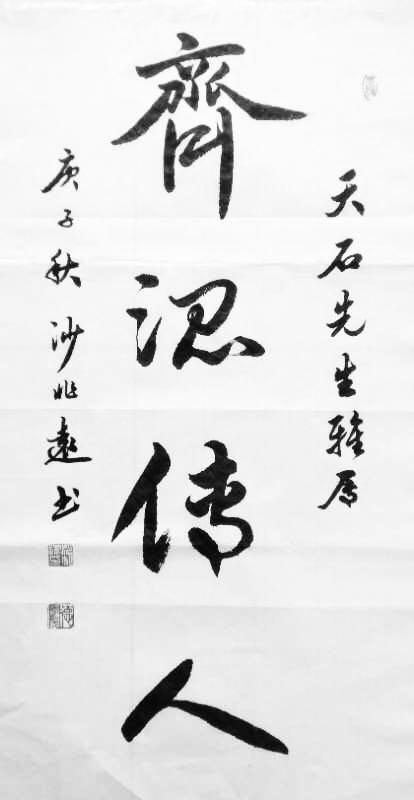 天石先生雅属
齊傳人
庚子秋沙兆遠书